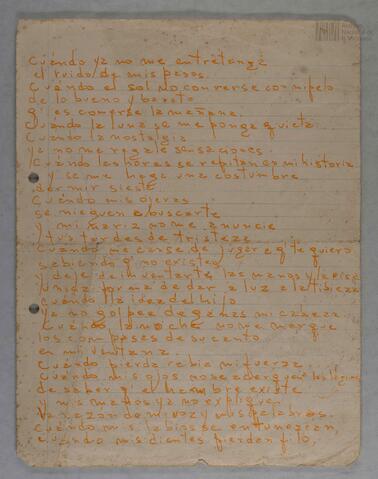 Cuando ya no me entretenga
el ruido de mis pasos.
Cuando el sol no converse con mi pelo
de lo bueno y barato
q' es comprarse la mañana.
Cuando la luna se me ponga quieta.
Cuando la nostalgia
ya no me regale sensaciones.
Cuando las horas se repitan en mi historia
y se me haga una costumbre
dormir siesta.
Cuando mis ojeras
se nieguen a buscarte
y mi nariz no me anuncie
tus tardes de tristeza.
Cuando me canse de jugar a q' te quiero
sabiendo q' no existes
y deje de inventarte las manos y la
forma de dar a luz a la tibieza
cuando la idea del hijo
ya no golpee de ganas mi cabeza.
Cuando la noche no me marque
los compases de su canto
en mi ventana.
Cuando pierda rabia mi fuerza.
Cuando mis ojos no se acerquen a las
de saber q' el hombre existe
y mis manos ya no expliquen
la razón de mi voz y mis palabras.
Cuando mis labios se entumezcan,
cuando mis dientes pierdan filo,